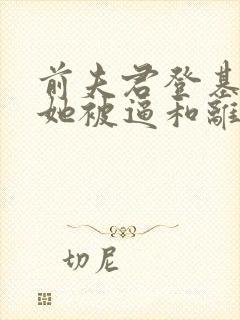 前夫君登基
她被逼和離
切尼